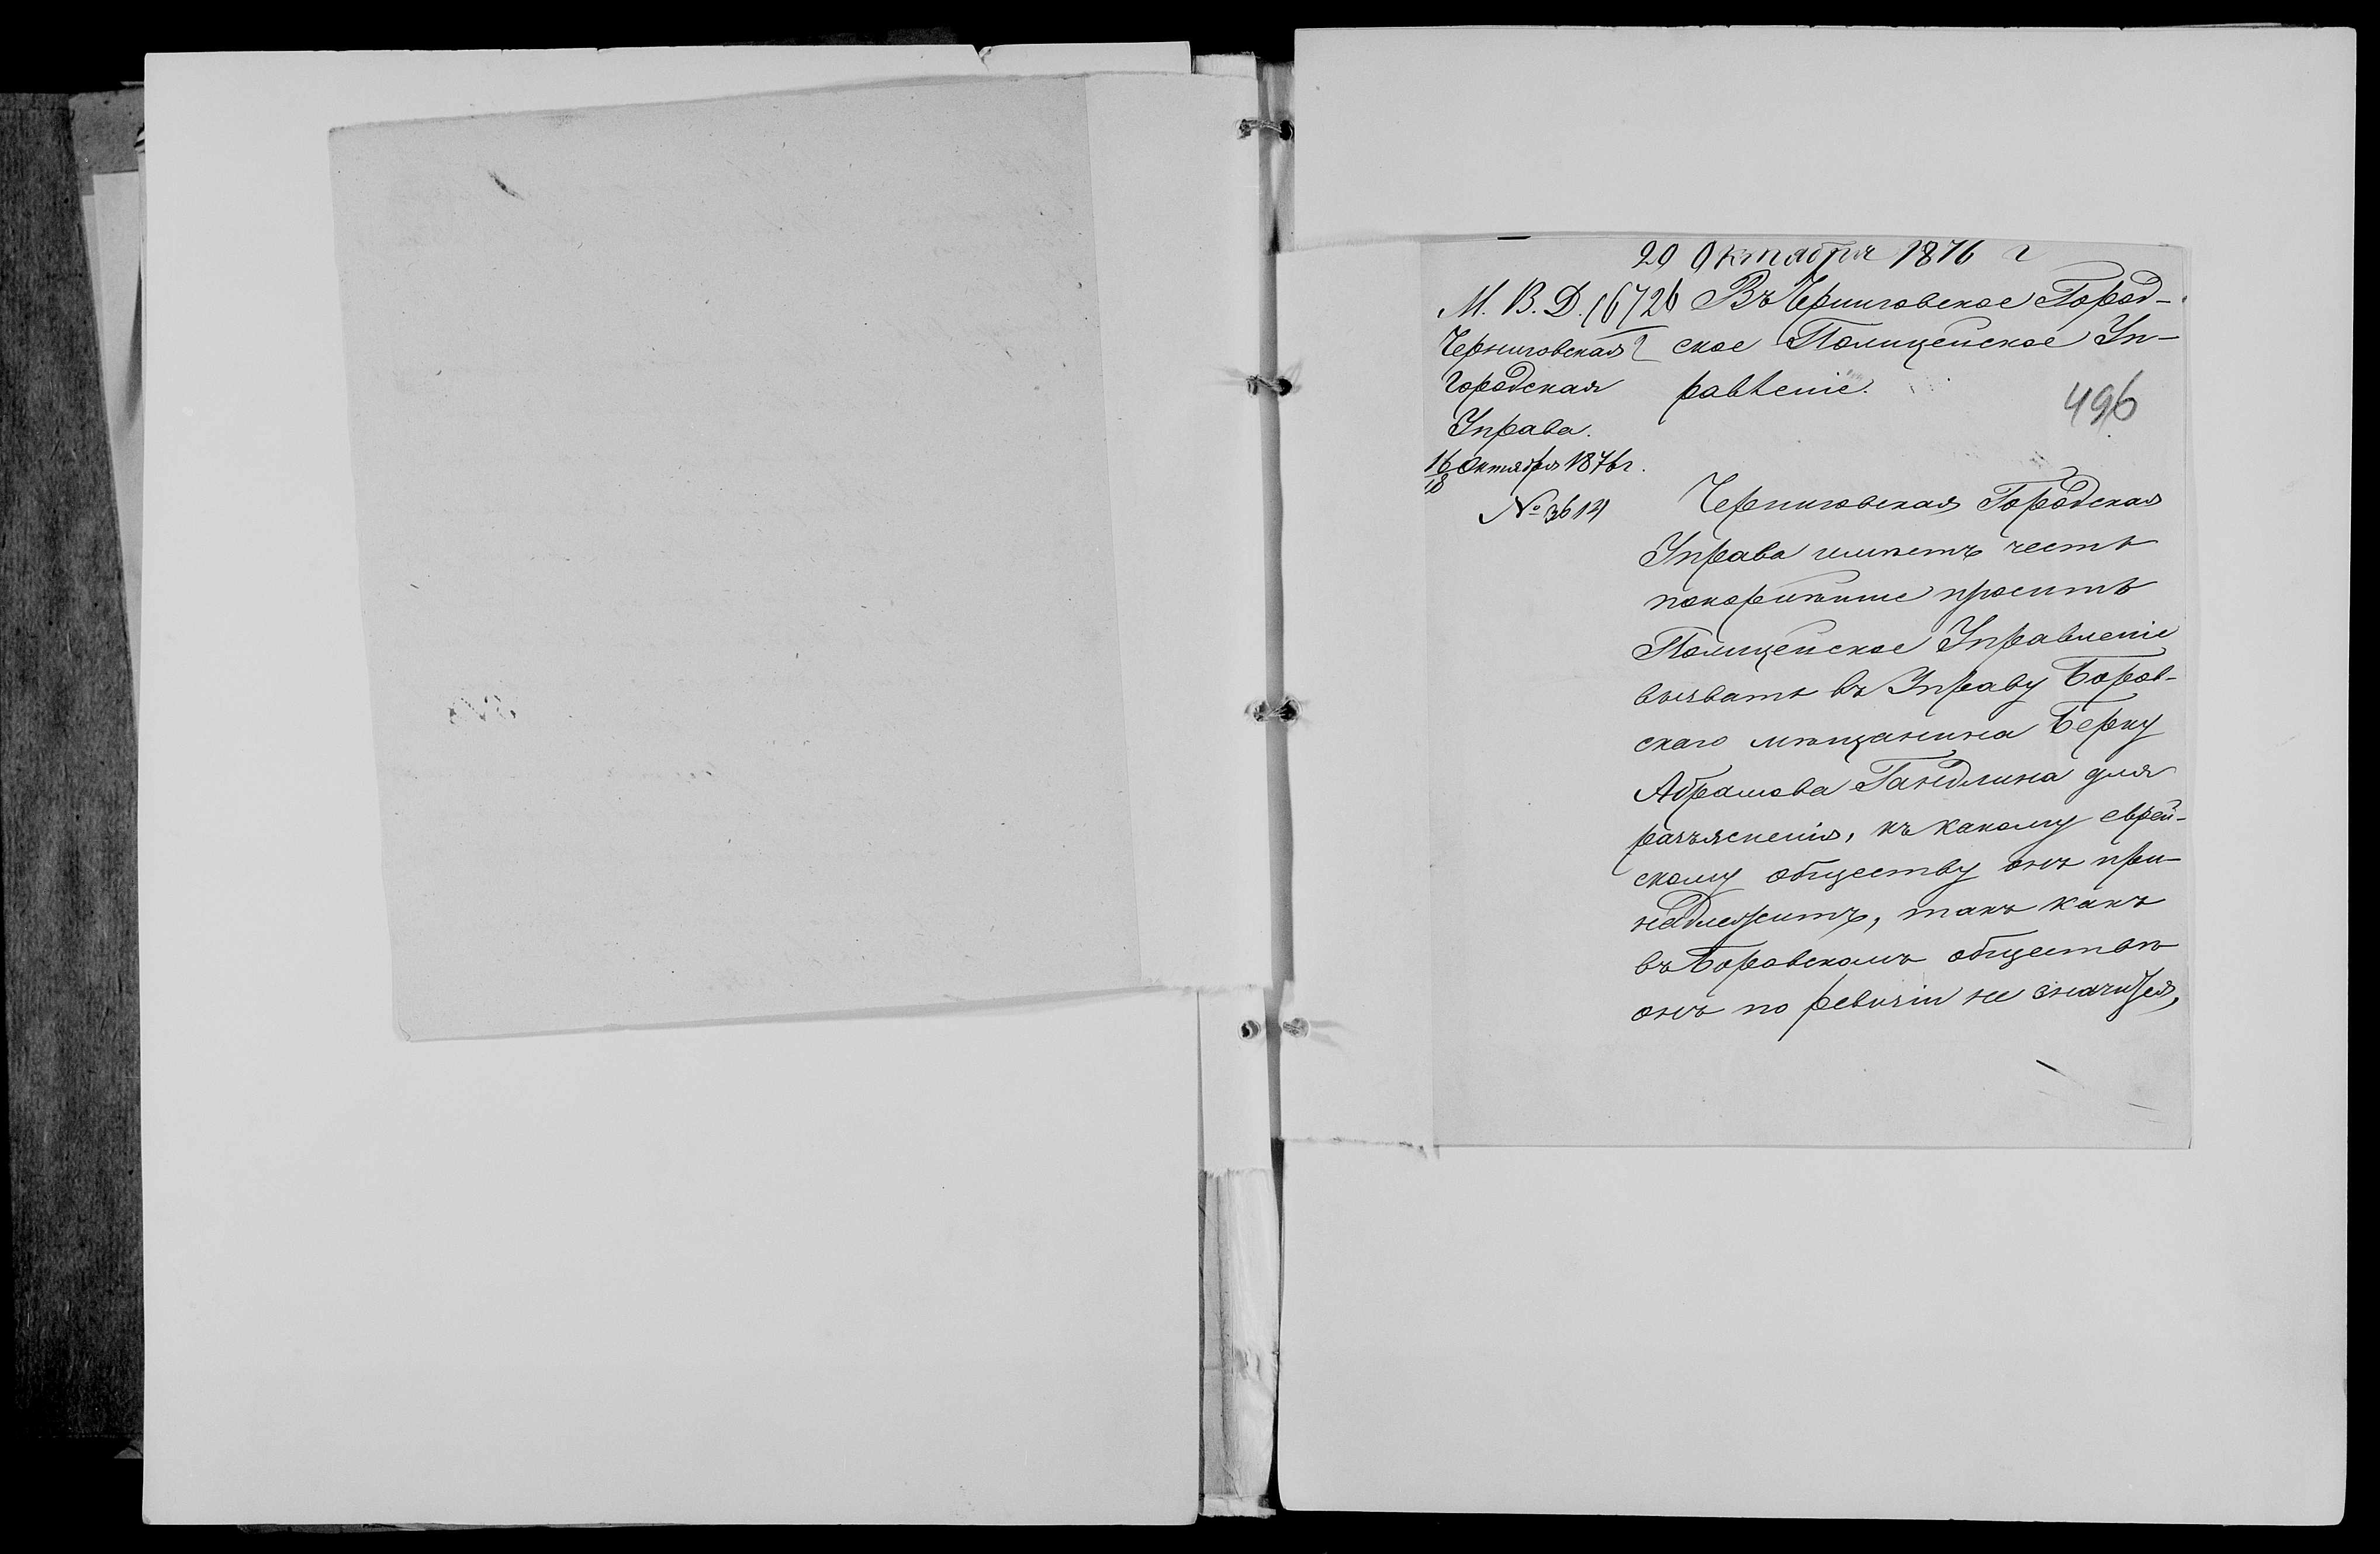 20 Октября 1876 г
М. В. Д. 16726
Черниговская
Городская
Управа.
16 Октября 1876 г.
18
№ 3614
Въ Черниговское Город-
ское Полицейское Уп-
равленіе.
496
Черниговская Городская
Управа имѣетъ честь
покорнѣйше просить
Полицейское Управленіе
вызвать въ Управу Боров-
скаго мѣщанина Берку
Абрамова Гандлина для
разъясненія, къ какому еврей-
скому обществу онъ при-
надлежитъ, такъ какъ
въ Боровскомъ обществѣ
онъ по ревизіи не значится,